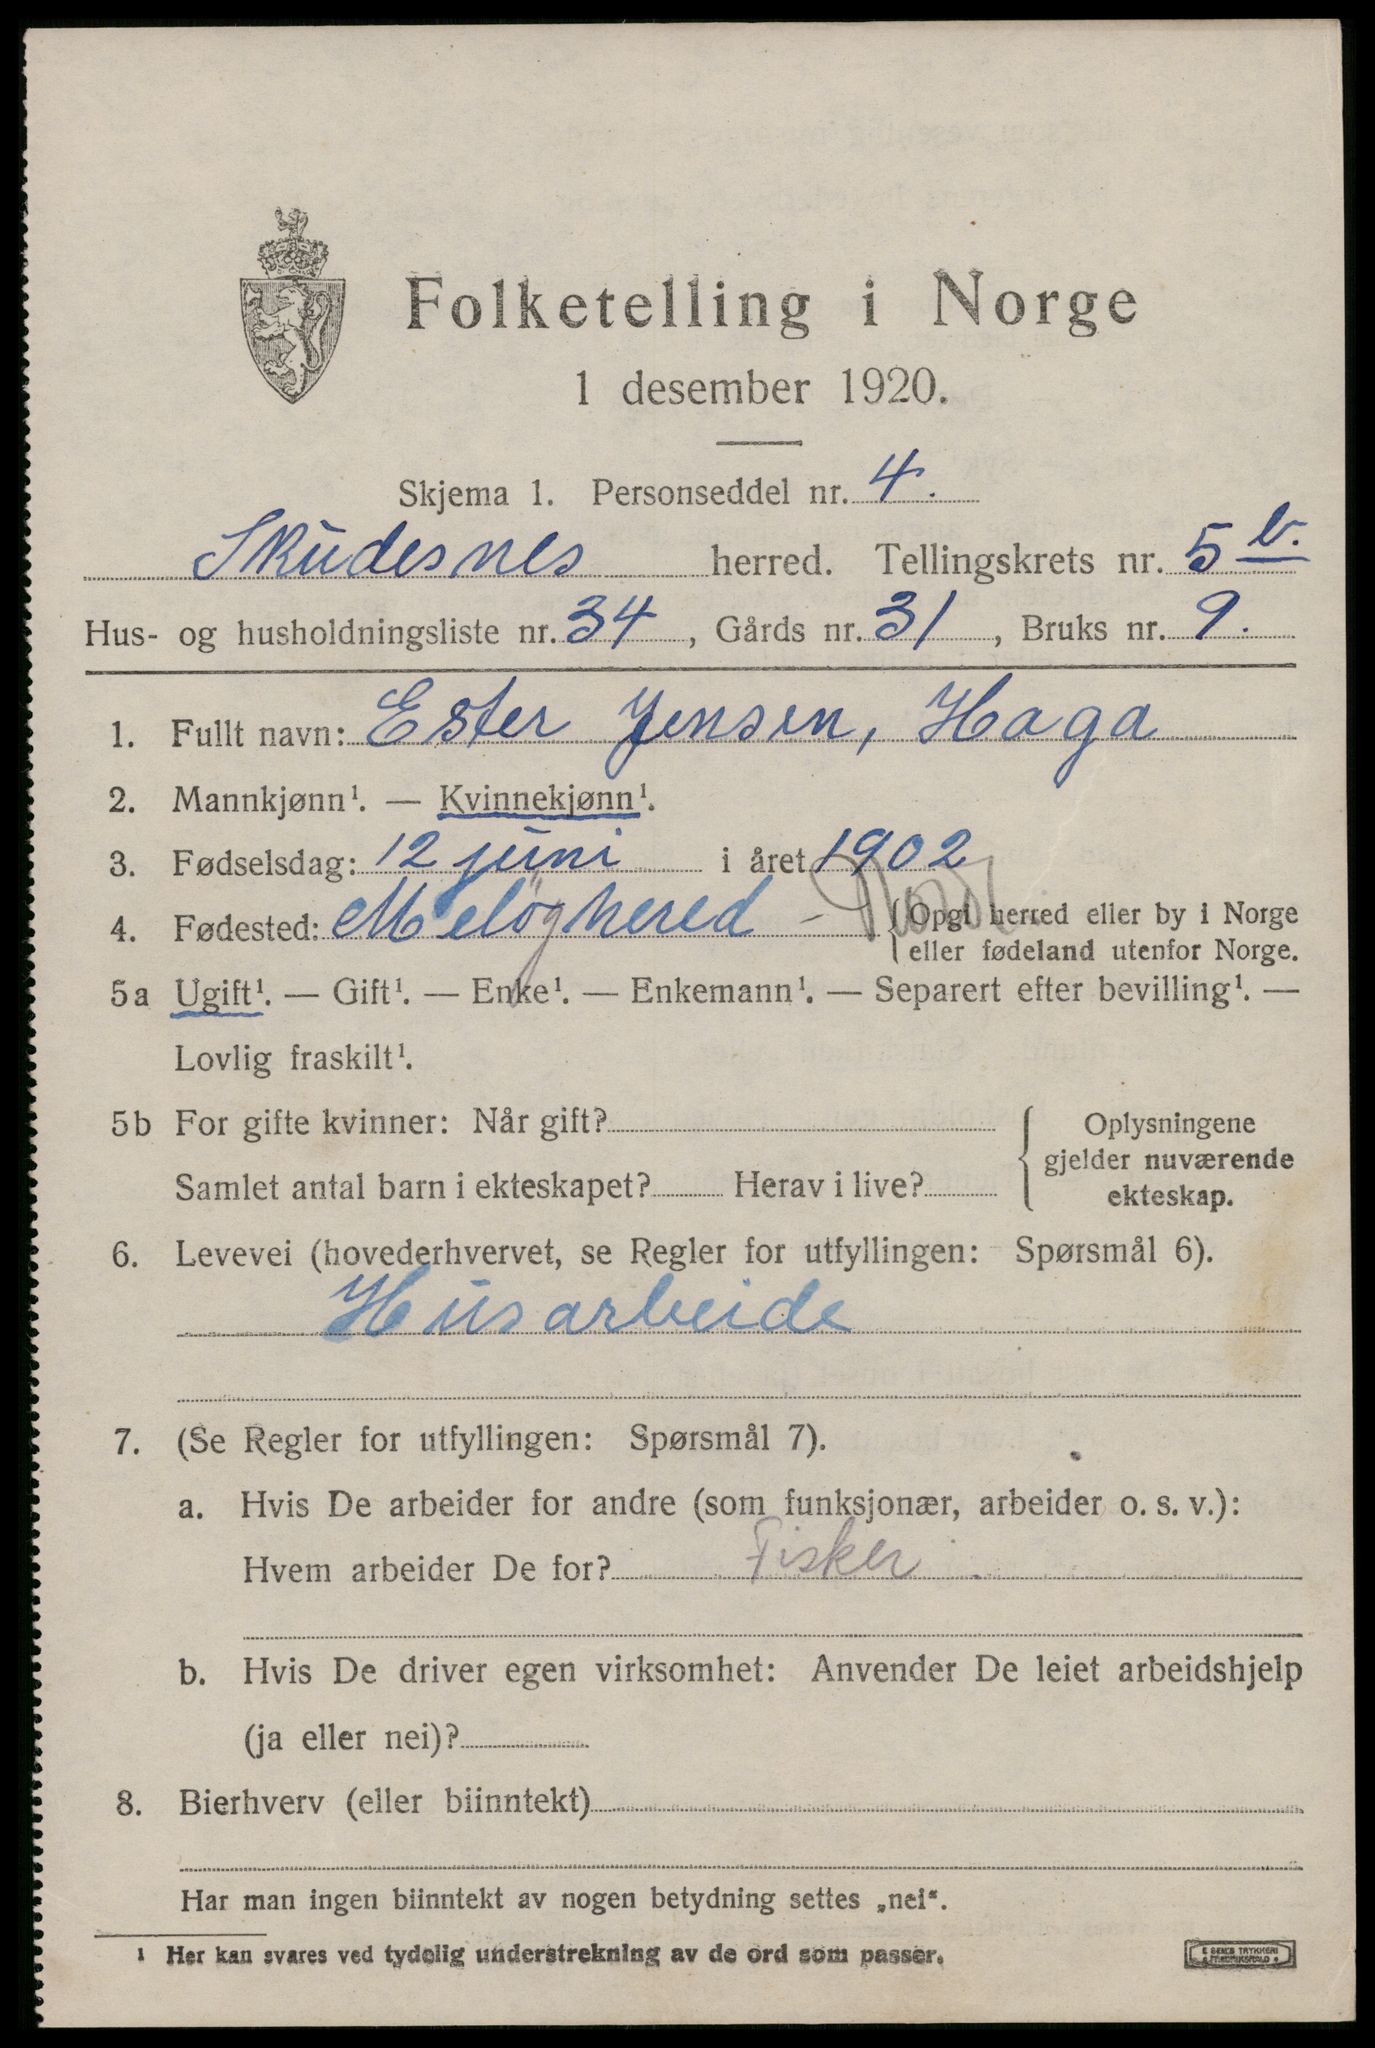 Folketelling i Norge
1 desember 1920.
Skjema 1. Personseddel nr. 4.
Skudesnes herred. Tellingskrets nr. 5 b.
Hus- og husholdningsliste nr. 34, Gårds nr. 31, Bruks nr. 9.
1. Fullt navn: Ester Jensen, Haga
2. Mannkjønn¹. — Kvinnekjønn¹.
3. Fødselsdag: 12 juni i året 1902
4. Fødested: Meløghered - {Opgi herred eller by i Norge
eller fødeland utenfor Norge.
5a Ugift¹. — Gift¹. — Enke¹. — Enkemann¹. — Separert efter bevilling¹. —
Lovlig fraskilt¹.
5b For gifte kvinner: Når gift?
Samlet antal barn i ekteskapet? Herav i live?
{Oplysningene
gjelder nuværende
ekteskap.
6. Levevei (hovederhvervet, se Regler for utfyllingen: Spørsmål 6).
Husarbeide
7. (Se Regler for utfyllingen: Spørsmål 7).
a. Hvis De arbeider for andre (som funksjonær, arbeider o. s. v.):
Hvem arbeider De for? Fisker
b. Hvis De driver egen virksomhet: Anvender De leiet arbeidshjelp
(ja eller nei)?
8. Bierhverv (eller biinntekt)
Har man ingen biinntekt av nogen betydning settes „nei“.
¹ Her kan svares ved tydelig understrekning av de ord som passer.